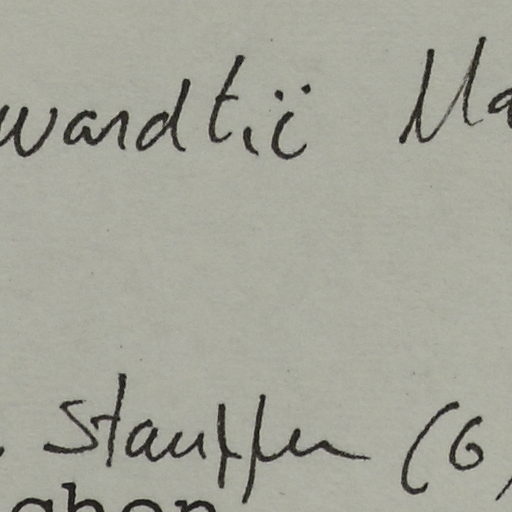 wardtii Ma
. Stauffer (G)
ghon